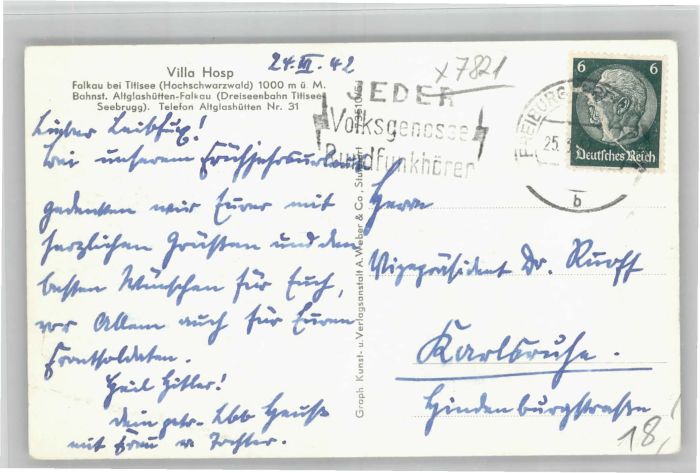 Villa Hosp
Falkau bei Titisee (Hochschwarzwald) 1000 m ü M.
Bahnst. Altglashütten-Falkau (Dreiseenbahn Titisee
Seebrugg). Telefon Altglashütten Nr. 31
24. III. 42
Lieber Leibfux!
Bei unserem Frühjahrsurlaub
gedenken wir Eurer mit
herzlichen Grüßen und den
besten Wünschen für Euch,
vor Allem auch für Euren
Frontsoldaten.
Heil Hitler!
Dein
mit Frau u Tochter.
x 7821
JEDER
Volksgenosse
Rundfunkhörer
FREIBURG
25.
b
6 6
Deutsches Reich
Graph. Kunst- u. Verlagsanstalt A. Weber & Co., Stuttgart
Herrn
Vizepräsident Dr. Ruoff
Karlsruhe.
Hindenburgstraße
18,